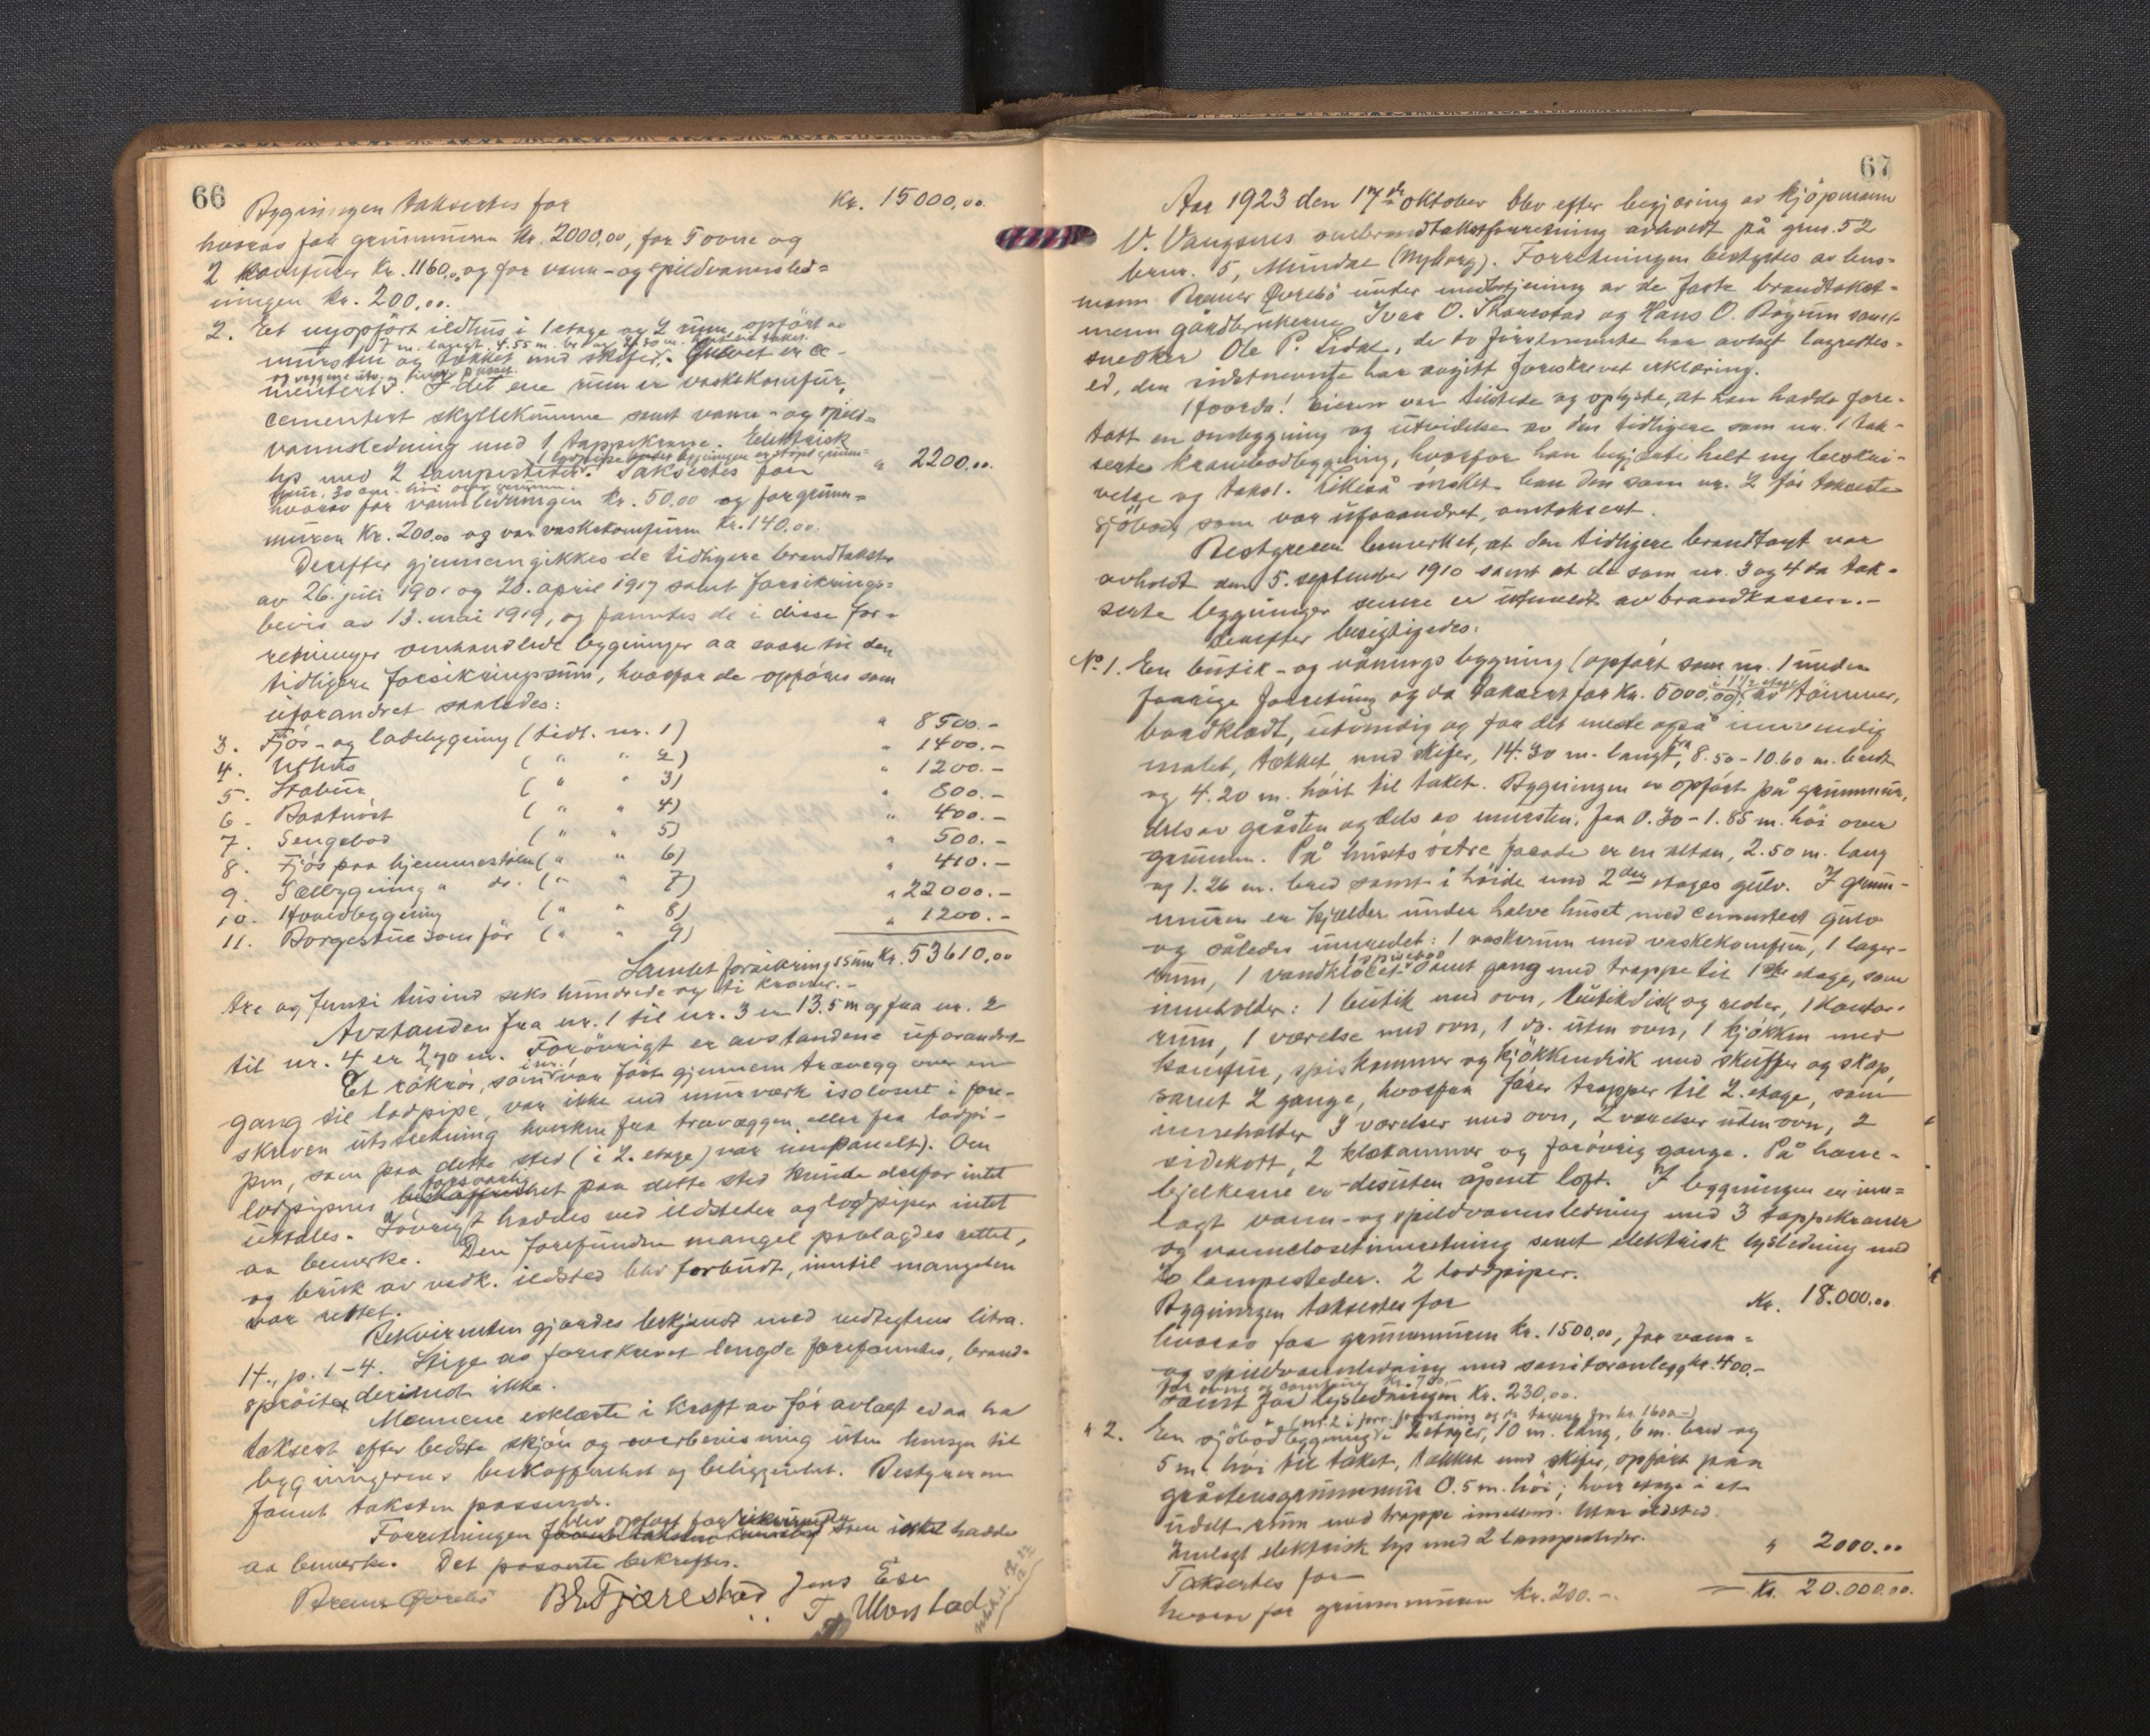 66
Bygningen taksertes for Kr. 15000,00
hvorav for grunnmuren Kr. 2000,00, for 5 ovne og
2 komfurer Kr. 1160,00 og for vann- og spildvannsled=
ningen Kr. 200,00.
2. Et nyopført ildhus i 1 etage og 2 rum, opført av
7 m. langt, 4.55 m. br. og 2.30 m. høit til taket.
mursten og tækket med skifer. Gulvet er ce-
og veggene utv. og innv. pusset.
mentert. I det ene rum er vaskekomfur,
cementert skyllekumme samt vann- og spild=
vannsledning med 1 tappekrane. Elektrisk
1 lodpipe. Under bygningen er støpt grunn=
lys med 2 lampesteder. Taksertes for " 2200,00.
mur, 30 cm. høi over grunnen.
hvorav for vannledningen Kr. 50,00 og for grunn=
muren Kr. 200,00 og for vaskekomfuren Kr. 140,00.
Derefter gjennemgikkes de tidligere brandtakster
av 26. juli 190 og 20. april 1917 samt forsikrings=
bevis av 13. mai 1919, og fanntes de i disse for=
retninger omhandlede bygninger aa svare til den
tidligere forsikringssum, hvorfor de opføres som
uforandret saaledes:
3. Fjøs- og ladebygning (tidl. nr. 1) " 8500.-
4. Uthus ( " " 2) " 1400.-
5. Stabur ( " " 3) " 1200.-
6. Baatnøst ( " " 4) " 800.-
7. Sengebod ( " " 5) " 400.-
8. Fjøs paa hjemmestølen ( " " 6) " 500.-
9. Sælbygning " do. ( " " 7) " 410.-
10. Hovedbygning ( " " 8) " 22000.-
11. Borgestue som før ( " " 9) " 1200.-
Samlet forsikringssum Kr. 53610,00
tre og femti tusind seks hundrede og ti kroner.-
Avstanden fra nr. 1 til nr. 3 er 13.5 m og fra nr. 2
til nr. 4 er 2,70 m. Forøvrigt er avstandene uforandret
i nr. 1
Et rökrör, som var ført gjennem trævegg over en
gang til lodpipe, var ikke ved murverk isoleret i fore-
skreven utstrekning hverken fra trævæggen eller fra lodpi-
pen, som paa dette sted (i 2. etage) var innpanelt). Om
forsvarlig
lodpipens beskaffenhet paa dette sted kunde derfor intet
uttales. Iøvrigt haddes ved ildsteder og lodpiper intet
aa bemerke. Den forefundne mangel paalagdes rettet,
og bruk av vedk. ildsted blev forbudt, inntil mangelen
var rettet.
Rekvirenten gjordes bekjendt med vedtegtens litra.
14., p. 1-4. Stige av foreskrevet lengde forefanntes, brand=
sprøite derimot ikke.
Mennene erklærte i kraft av før avlagt ed aa ha
taksert efter bedste skjøn og overbevisning uten hensyn til
bygningernes beskaffenhet og beliggenhet. Bestyreren
fannt taksten passende.
blev oplæst for rekvirenten
Forretningen som intet hadde
aa bemerke. Det passerte bekreftes.
Brener Øvrebø B. E. Fjærestad Jens Ese
T. Ulvestad
67
Aar 1923 den 17de oktober blev efter begjæring av kjøpmann
V. Vangsnes ombrandtakstforretning avholdt på grnr. 52
brnr. 5, Mundal (Nyborg). Forretningen bestyrtes av lens-
mann Brener Øvrebö under medbetjening av de faste brandtakst-
menn gårdbrukerne Ivar O. Skarestad og Hans O. Bøyum samt
snedker Ole P. Lidal, de to førstnevnte har avlagt lagrettes-
ed, den sidstnevnte har avgitt foreskrevet erklæring.
Hvorda! Eieren var tilstede og oplyste, at han hadde fore-
tatt en ombygning og utvidelse av den tidligere som nr. 1 tak-
serte krambodbygning, hvorfor han begjærte helt ny beskri-
velse og takst. Likeså ønsket han den som nr. 2 før takserte
sjøbod, som var uforandret, omtaksert.
Bestyreren bemerket, at den tidligere brandtakst var
avholdt den 5. september 1910 samt at de som nr. 3 og 4 da tak-
serte bygninger senere er utmeldt av brandkassen.-
Derefter besigtigedes:
No. 1. En butik- og våningsbygning (opført som nr. 1 under
i 1 1/2 etage
forrige forretning og da taksert for Kr. 5000,00), av tømmer,
bordklædt, utvendig og for det meste også innvendig
malet, tækket med skifer, 14.30 m. langt, fra 8.50-10.60 m. bredt
og 4.20 m. høit til taket. Bygningen er opført på grunnmur,
dels av gråsten og dels av mursten, fra 0.30-1.85 m. høi over
grunnen. På husets østre facade er en altan, 2.50 m. lang
og 1.26 m. bred samt i høide med 2den etages gulv. I grunn-
muren er kjælder under halve huset med cementert gulv
og således innredet: 1 vaskerum med vaskekomfur, 1 lager-
1 spisebod
rum, 1 vandklosett samt gang med trappe til 1ste etage, som
inneholder: 1 butik med ovn, butikdisk og reoler, 1 kontor-
rum, 1 værelse med ovn, 1 do. uten ovn, 1 kjøkken med
komfur, spiskammer og kjøkkendisk med skuffer og skap,
samt 2 gange, hvorfra fører trapper til 2. etage, som
inneholder 3 værelser med ovn, 2 værelser uten ovn, 2
sidekott, 2 klækammer og forøvrig gange. På hane-
bjelkene er desuten åpent loft. I bygningen er inn=
lagt vann- og spildvannsledning med 3 tappekraner
og vannclosetinnretning samt elektrisk lysledning med
20 lampesteder. 2 lodpiper.
Bygningen taksertes for Kr. 18.000,00
hvorav for grunnmuren Kr. 1500,00, for vann=
og spildvannledning med sanitæranlegg kr. 400,-
for ovne og komfurer Kr. 700,-
samt for lysledningen Kr. 230,00.
(nr. 2 i forr. forretning og da taksert for kr. 1600-)
" 2. En sjøbodbygning i 2 etager, 10 m. lang, 6 m. bred og
5 m. høi til taket, tækket med skifer, opført paa
gråstensgrunnmur 0.5 m. høi; hver etage i et
udelt rum med trappe imellem. Uten ildsted.
Innlagt elektrisk lys med 2 lampesteder.
Taksertes for " 2000,00
hvorav for grunnmuren Kr. 200.-
= Kr. 20.000,00.